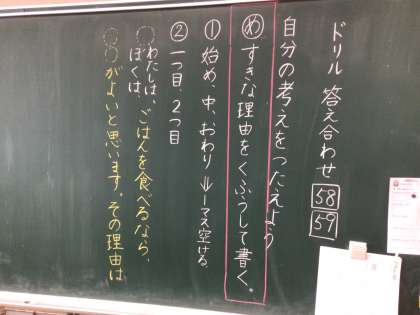 ドリル 答え合わせ 58 59
自分の考えをつたえよう
め すきな理由をくふうして書く。
① 始め、中、おわり ⇒一マス空ける
② 一つ目、2つ目
わたしは、ごはんを食べるなら、
ぼくは、
がよいと思います。その理由は